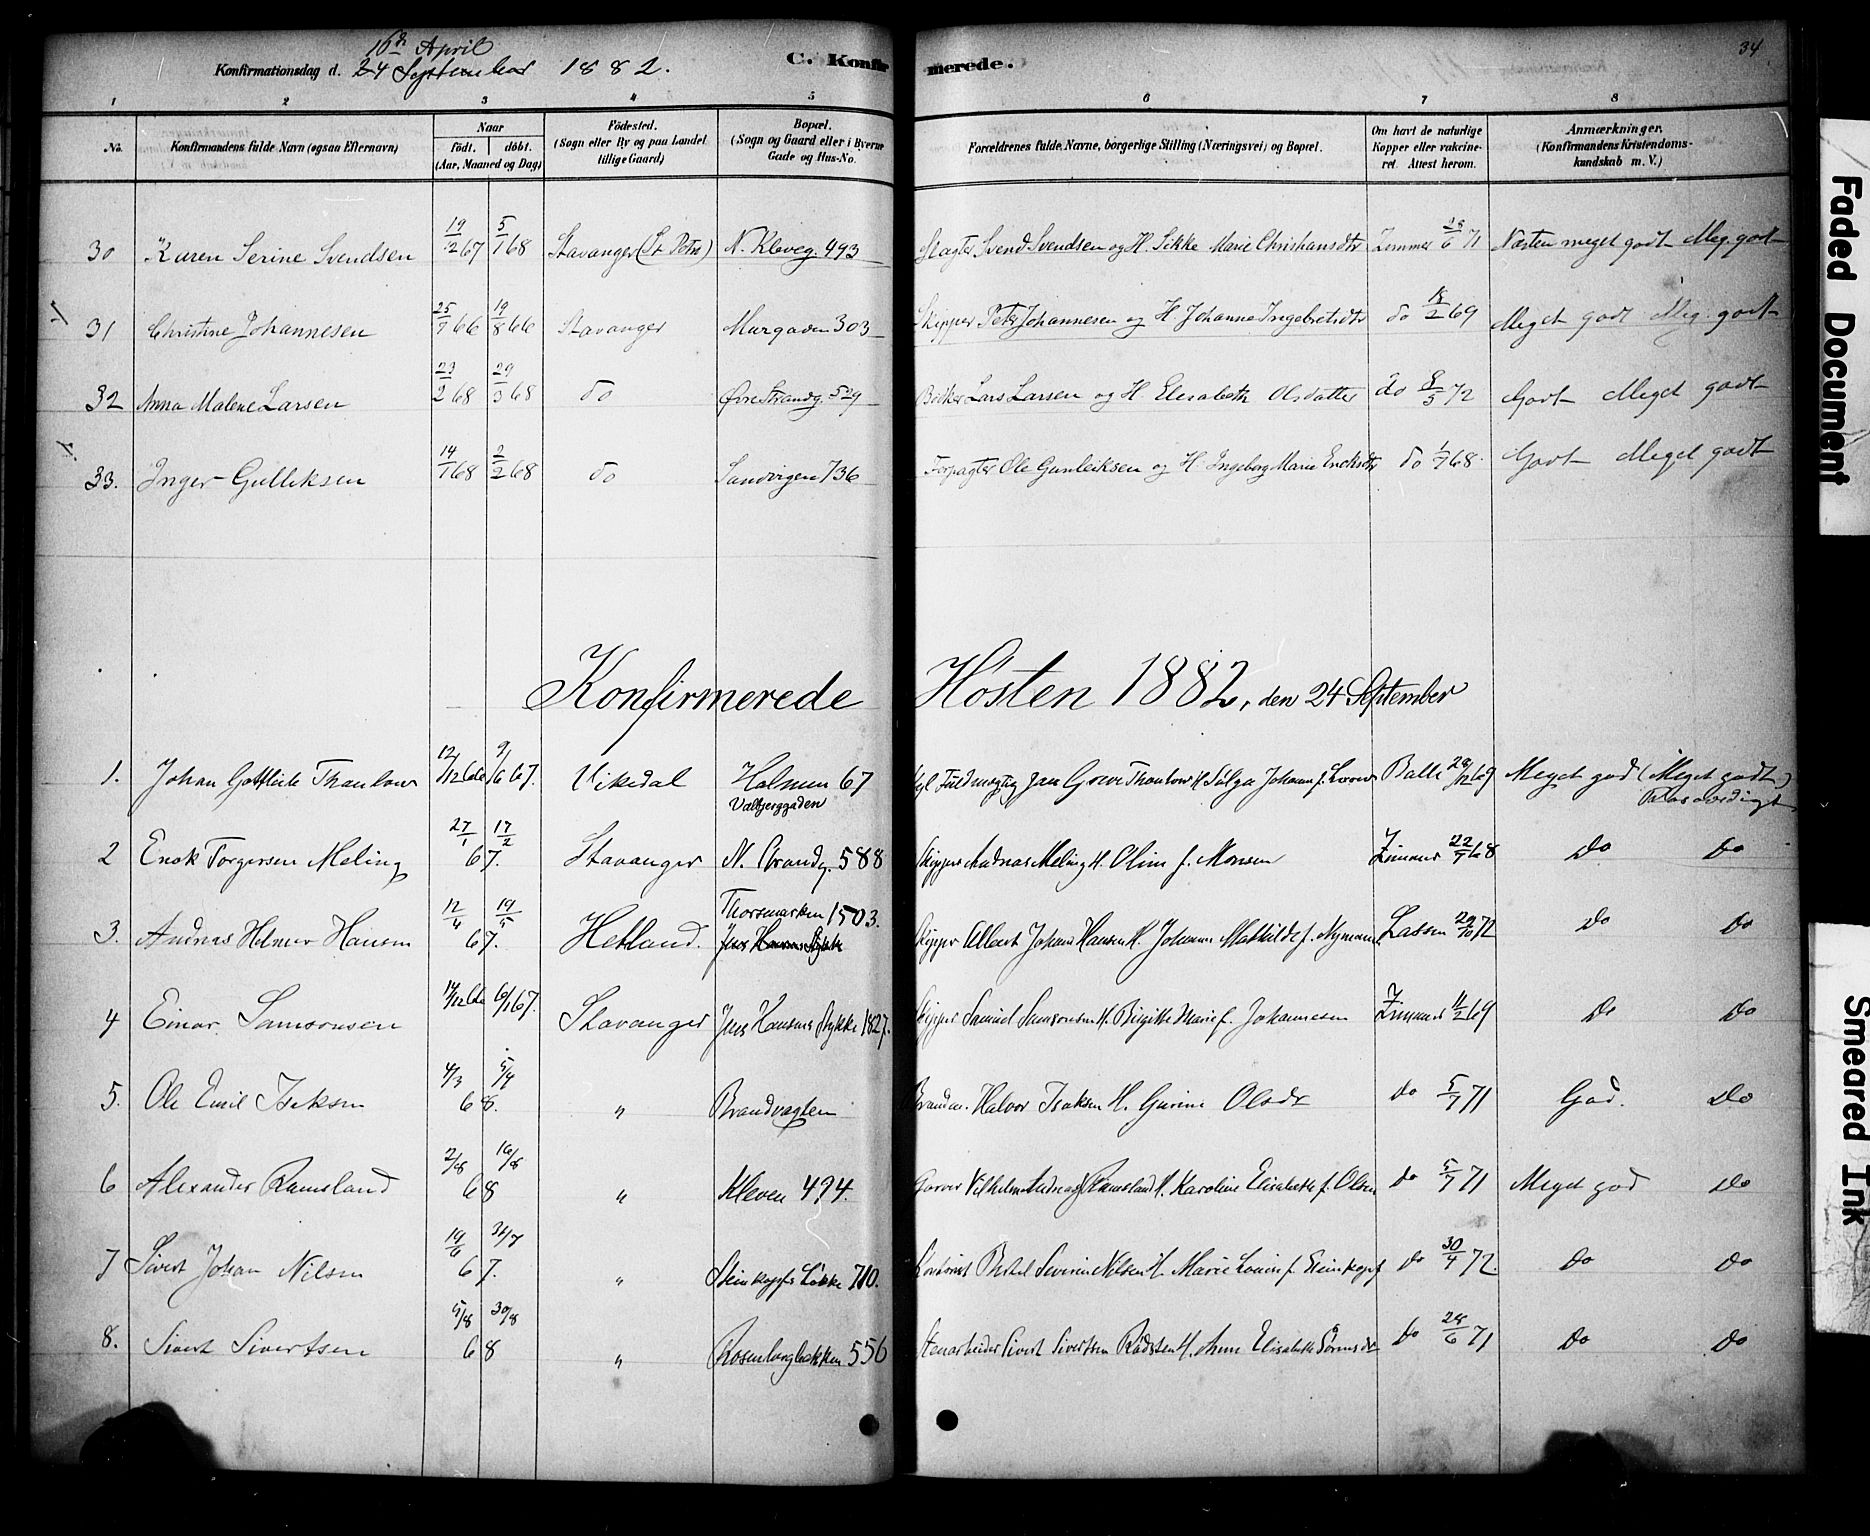 34
16de April
Konfirmationsdag d. 24 September 1882.
C. Konfirmerede.
1 2 3 4 5 6 7 8
No. Konfirmandens fulde Navn (ogsaa Efternavn) Naar Födt. döbt. (Aar, Maaned og Dag) Födested. (Sogn eller By og paa Landet tillige Gaard) Bopæl. (Sogn og Gaard eller i Byerne Gade og Hus-No. Forældrenes fulde Navne, borgerlige Stilling (Næringsvei) og Bopæl. Om havt de naturlige Kopper eller vakcineret. Attest herom. Anmærkninger. (Konfirmandens Kristendomskundskab m. V.)
30 Karen Serine Svendsen 19/12 67 5/1 68 Stavanger (St Petri) N. Kleveg. 493 Slagter Svend Svendsen og H. Sikke Marie Christiansdtr Zimmer 25/6 71 Næsten meget godt Meg. godt
31 Christine Johannesen 25/7 66 19/8 66 Stavanger Murgaden 303 Skipper Peter Johannesen og H Johanne Ingebretsdtr do 18/2 69 Meget godt Meg. godt
32 Anna Malene Larsen 23/2 68 29/3 68 do Øvre Strandg. 529 Bödker Lars Larsen og H. Elisabeth Olsdatter do 8/5 72 Godt Meget godt
33. Inger Gulliksen 14/1 68 2/2 68 do Sandvigen 736 Forpagter Ole Gunleiksen og H. Ingeborg Marie Ericksdtr do 1/7 68. Godt Meget godt
Konfirmerede Hösten 1882, den 24 September
1. Johan Gottlieb Thaulow 12/12 66 9/6 67. Vikedal Holmen 67 Valbjerggaden Fuldmægtig Jan Greve Thaulow H. Johanne f. Balle 29/12 69 Meget god (Meget godt)
2 Enok Torgersen Meling 27/1 17/2 67. Stavanger N. Strandg. 588 Skipper Andreas Meling H. Oline f. Monsen Zimmer 22/7 68 Do Do
3. Andreas Helmer Hansen 12/4 19/5 67. Hetland. Thorsmarken 1503. Jens Hansens Stykke Skipper Albert Johan Hansen H. Johanne Mathilde f. Nyman Lassen 29/10 72 Do Do
4 Einar Samsonsen 14/12 66 6/1 67. Stavanger Jens Hansens Stykke 1827. Skipper Samuel Samsonsen H. Birgitte Marie f. Johannesen Zimmer 11/2 69 Do Do
5. Ole Emil Isaksen 4/3 5/4 68. " Brandvagten Halvor Isaksen H. Gurine Olsdr do 5/7 71 God. Do
6 Alexander Ramsland 2/8 16/8 68 " Kleven 494. Garver Vilhelm Andreas Ramsland H. Karoline Elisabeth f. Olsen do 5/7 71 Meget god Do
7 Sivert Johan Nilsen 19/6 31/7 67. " Steinkopfs Løkke 710. Bertel Severin Nilsen H. Marie Louise f. Steinkopf do 30/4 72. Do Do
8. Sivert Sivertsen 5/8 30/8 68 " Rosenborgbakken 556 Stenarbeider Sivert Sivertsen H. Anne Elisabeth Sørensdr do 28/6 71 Do Do
Faded Document
Smeared Ink